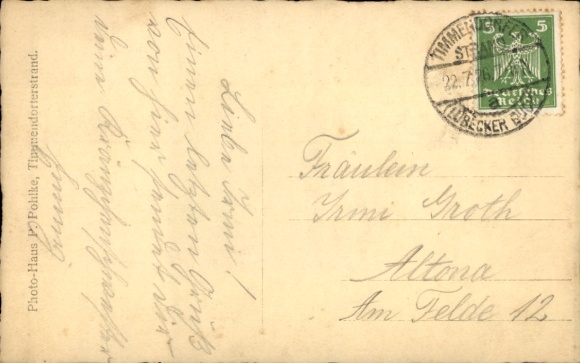 Liebe Irmi!
Einen letzten Gruß
von hier sendet dir
deine
Photo-Haus P. Pohlke, Timmendorferstrand.
TIMMENDORFER
STRAND
22.7.26
a
(LÜBECKER BUCHT)
5 5
Deutsches
Reich
Fräulein
Irmi Groth
Altona
Am Felde 12